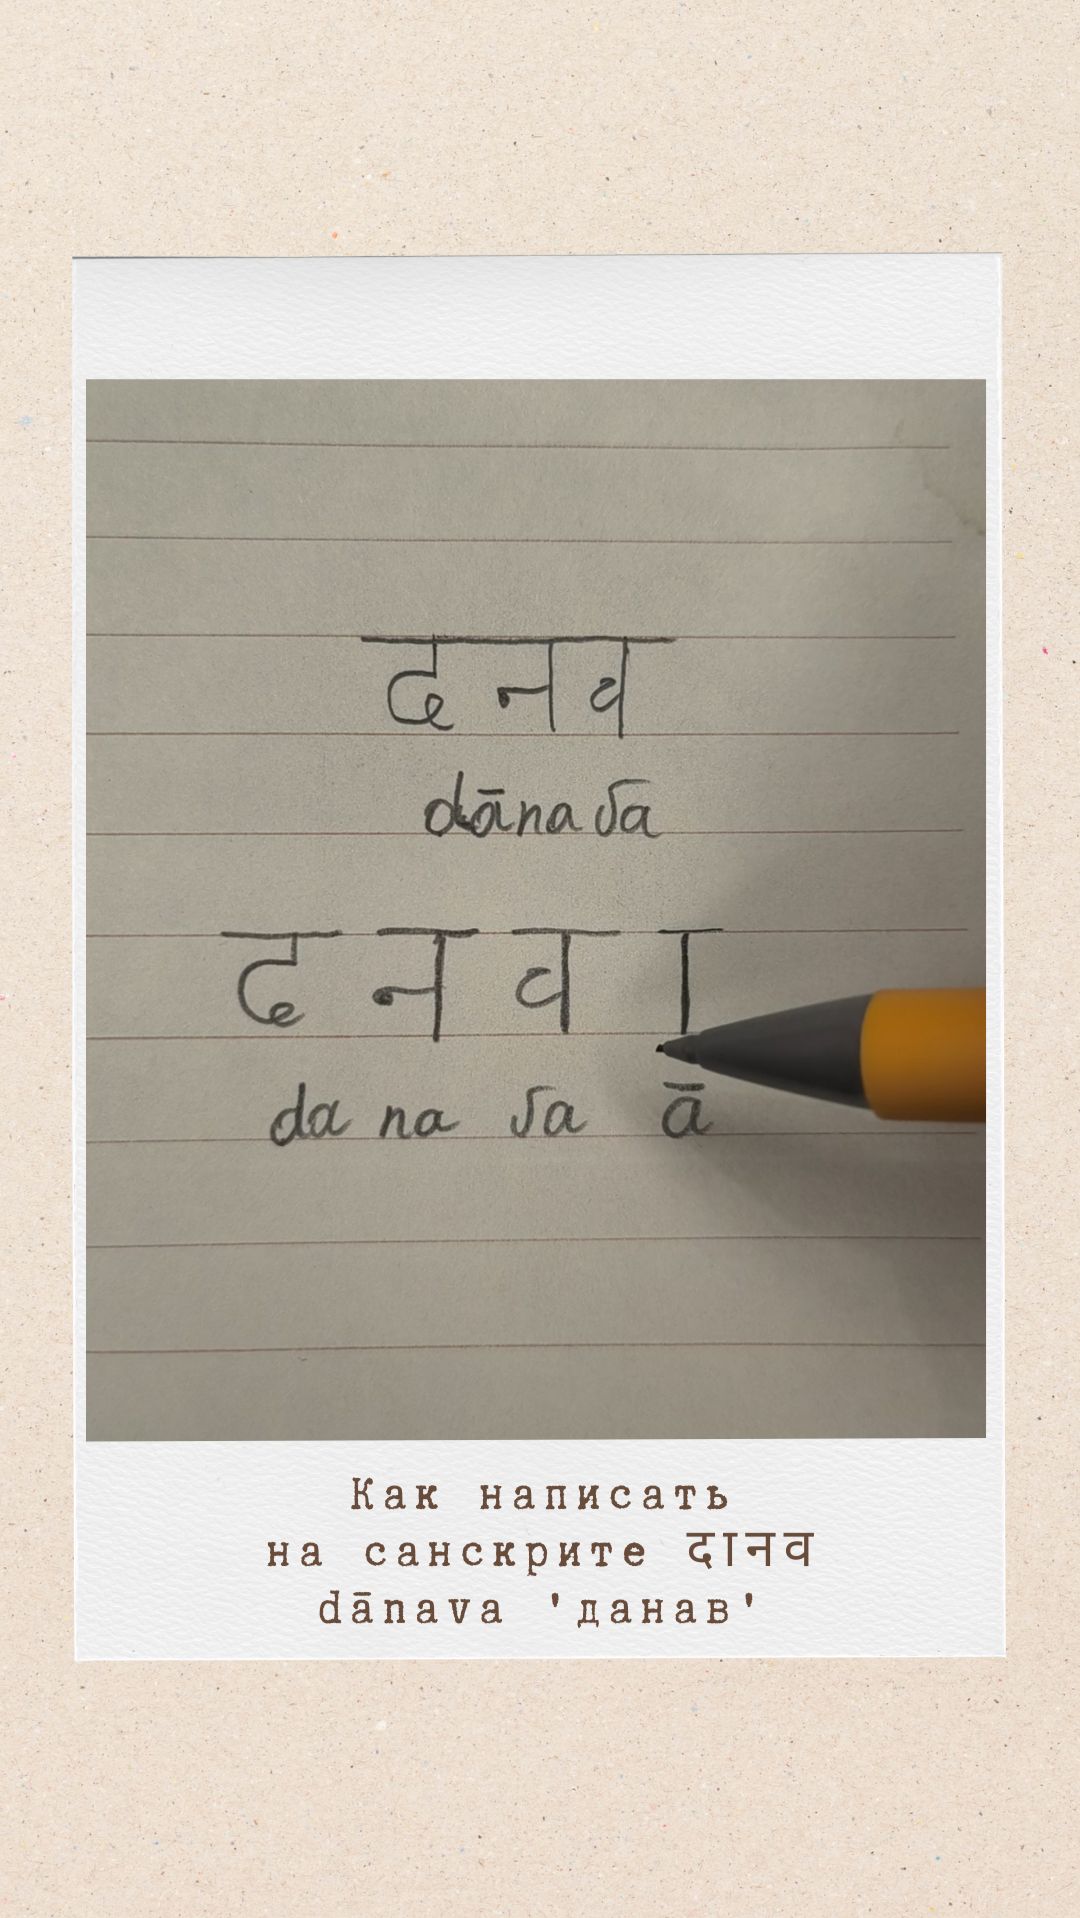 दनव
dānava
द न व ा
da na va ā
Как написать
на санскрите दानव
dānava 'данав'